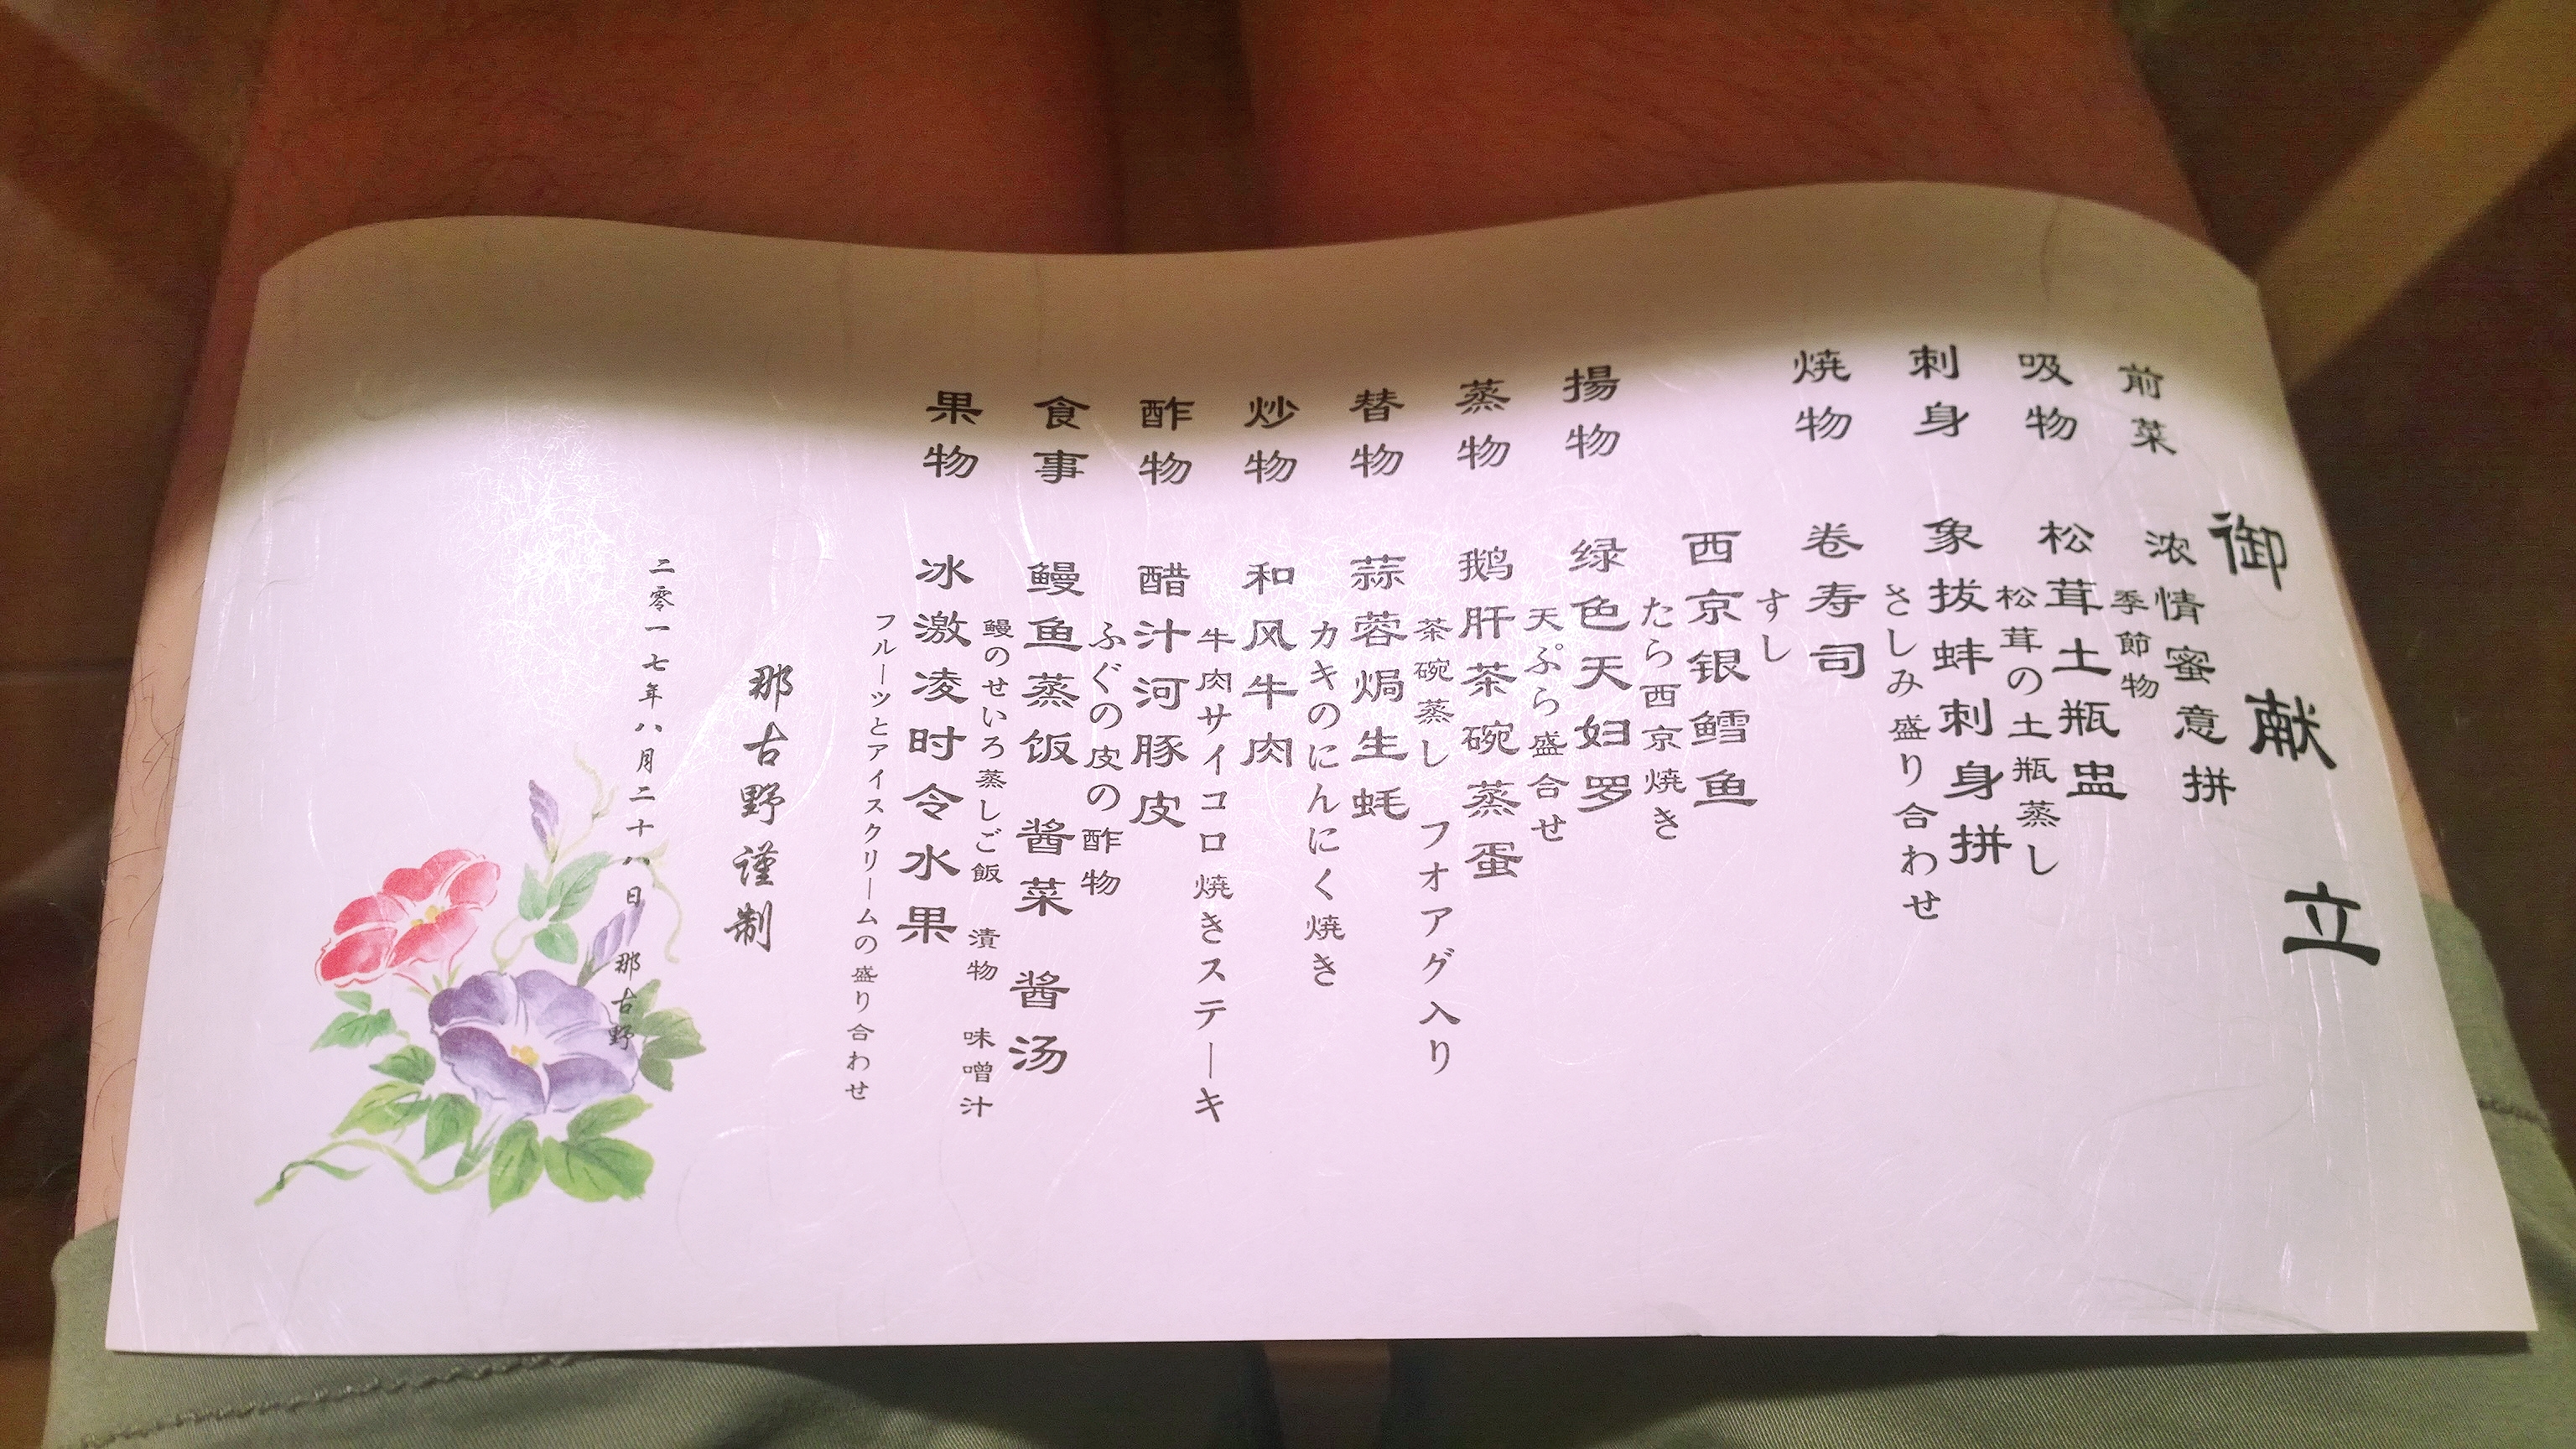 御献立
前菜 浓情蜜意拼
季節物
吸物 松茸土瓶盅
松茸の土瓶蒸し
刺身 象拔蚌刺身拼
さしみ盛り合わせ
焼物 卷寿司
すし
西京银鳕鱼
たら西京焼き
揚物 绿色天妇罗
天ぷら盛合せ
蒸物 鹅肝茶碗蒸蛋
茶碗蒸し フオアグ入り
替物 蒜蓉焗生蚝
カキのにんにく焼き
炒物 和风牛肉
牛肉サイコロ焼きステーキ
酢物 醋汁河豚皮
ふぐの皮の酢物
食事 鳗鱼蒸饭 酱菜 酱汤
鰻のせいろ蒸しご飯 漬物 味噌汁
果物 冰激凌时令水果
フルーツとアイスクリームの盛り合わせ
那古野谨制
二零一七年八月二十八日 那古野